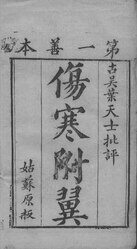 第一善本
古吳葉天士批評
傷寒附翼
姑蘇原板